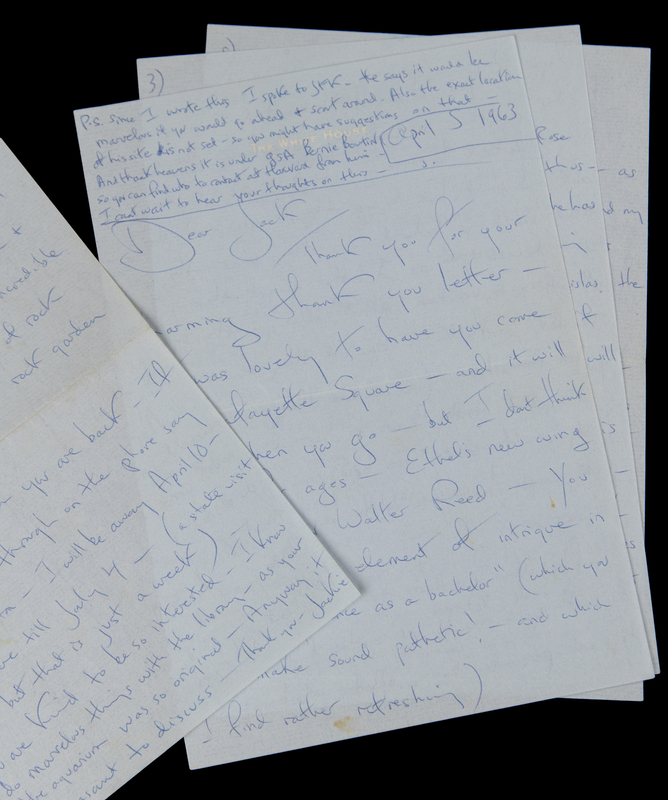 3)
P.S. Since I wrote this I spoke to JFK - he says it would be
marvelous if you would go ahead & scout around. Also the exact location
of his site is not set - so you might have suggestions on that -
And thank heavens it is under GSA Bernie Boutin
so you can find who to contact at Harvard from him -
I cant wait to hear your thoughts on this - J.
April 5 1963
Dear Jack
Thank you for your
arming thank you letter -
was lovely to have you come if
fayette Square - and it will
hen you go - but I dont think
ages - Ethel's new wing is
Walter Reed - You
element of intrigue in
nce as a bachelor" (which you
make sound pathetic! - and which
I find rather refreshing)
Rose
thus - as
he has my
the
will
is
&
incredible
of rock
rock garden
you are back - If
through on the phone say
- I will be away April 10 -
till July 4 - (a state visit
but that is just a week)
are kind to be so interested - I know
do marvelous things with the library - as your
the aquarium was so original - Anyway it
sant to discuss - Thank you - Jackie